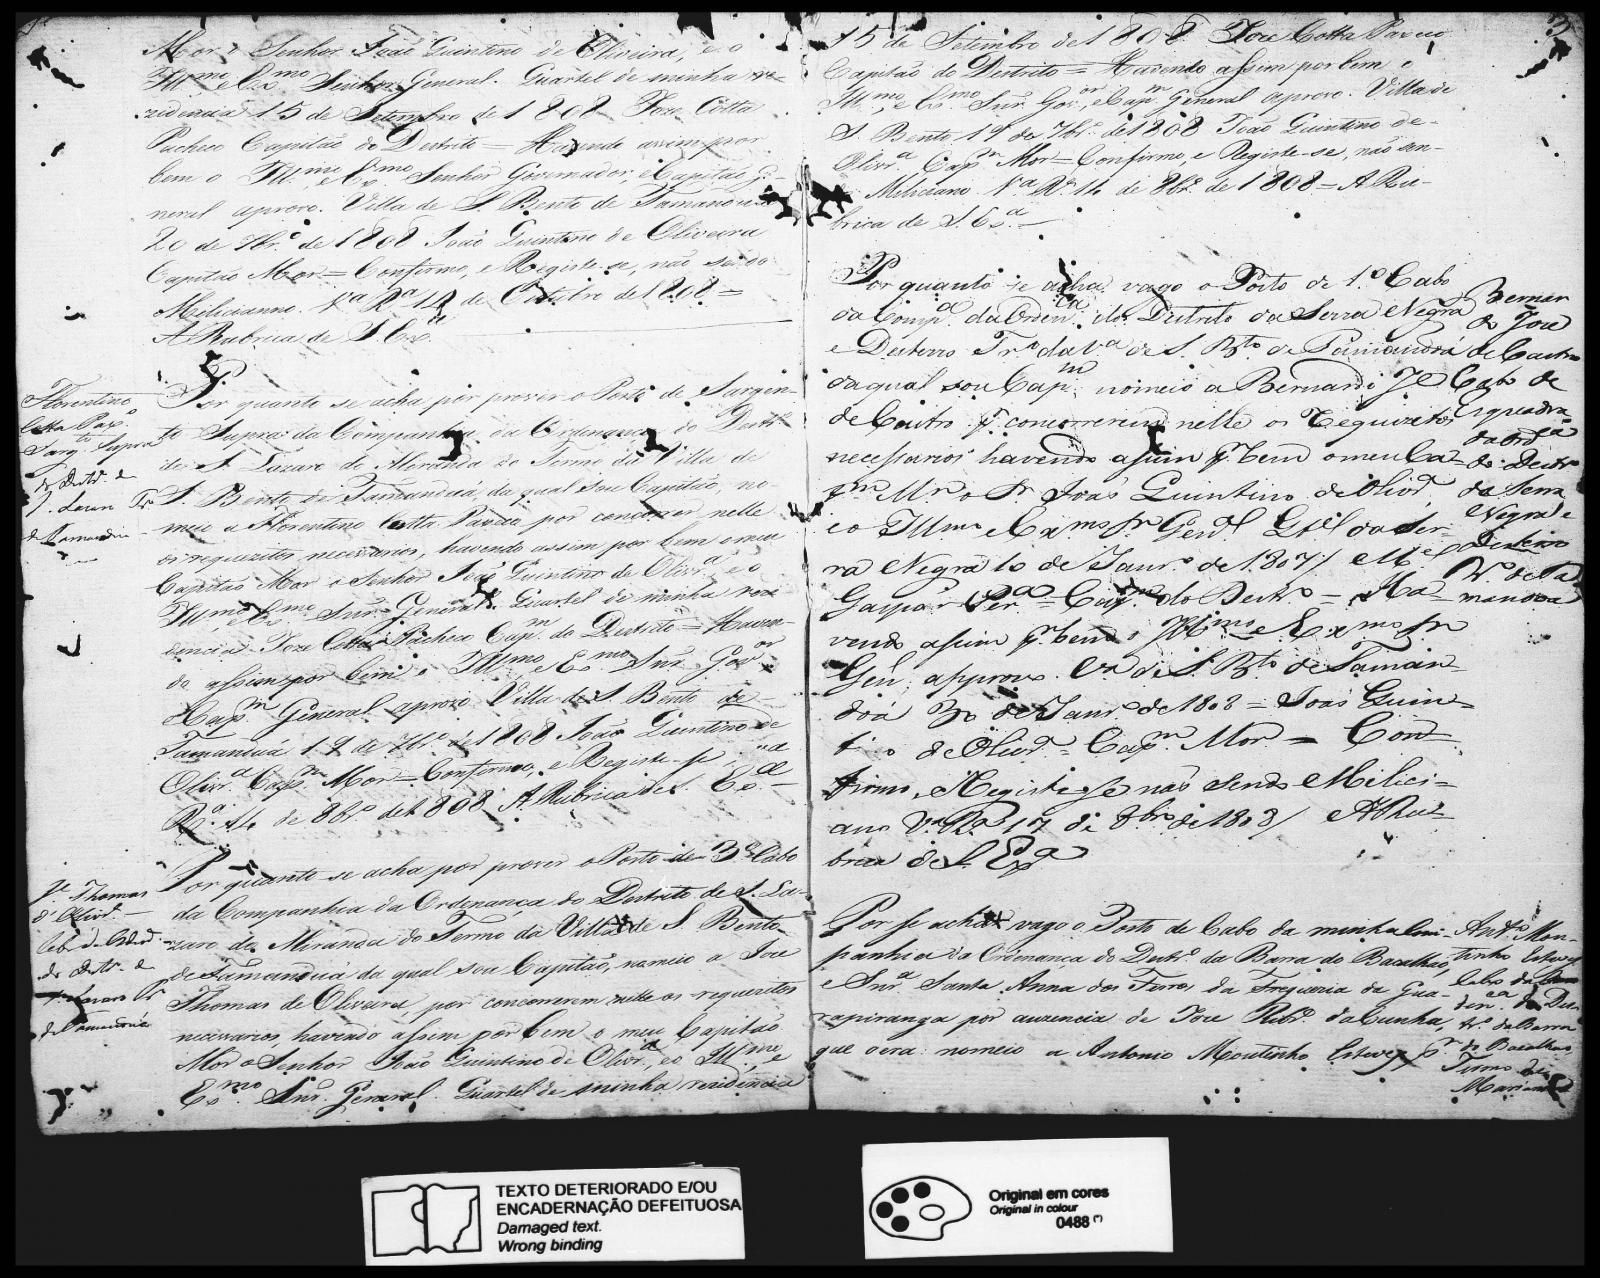 Mor o Senhor João Quintino de Oliveira, e o
Ill.mo e Ex.mo Senhor General. Quartel de minha re-
zidencia 15 de Setembro de 1808 Joze Cotta
Pacheco Capitão do Destrito = Havendo assim por
bem o Ill.mo e Ex.mo Senhor Governador, e Capitão Ge-
neral aprovo. Villa de S. Bento de Tamanduá
20 de 7br.º de 1808 João Quintino de Oliveira
Capitão Mor = Confirmo, e Registe-se, não sendo
Milicianno. V.a R.a 14 de Outubro de 1808 =
A Rubrica de S. Ex.a
Florentino
Cotta Pax.º
Sarg.to Supra
do Destr.º de
S. Lazaro Tr.º
de Tamandua
Por quanto se acha por prover o Posto de Sargen-
to Supra da Companhia da Ordenança do Destr.º
de S. Lazaro de Miranda do Termo da Villa de
S. Bento de Tamanduá, da qual sou Capitão, no-
meio a Florentino Cotta Pacheco por concorrer nelle
os requezitos necessarios, havendo assim por bem o meu
Capitão Mor o Senhor João Quintino de Olivr.a e o
Ill.mo e Ex.mo Snr. General. Quartel de minha rezi-
dencia Joze Cotta Pacheco Cap.m do Destrito = Haven-
do assim por bem o Ill.mo e Ex.mo Snr. Gov.or
e Cap.m General aprovo Villa de S. Bento de
Tamanduá 19 de 7br.º de 1808 João Quintino de
Olivr.a Cap.m Mor = Confirmo, e Registe-se V.a
R.a 14 de 8br.º de 1808 A Rubrica de S. Ex.a =
J.e Thomas
d'Olivr.a
Cabo da Ordn.
do Destr.º de
S. Lazaro Tr.º
de Tamanduá
Por quanto se acha por prover o Posto de 3º Cabo
da Companhia da Ordenança do Destrito de S. La-
zaro de Miranda do Termo da Villa de S. Bento
de Tamanduá da qual sou Capitão, nomeio a Joze
Thomas de Oliveira, por concorrerem nelle os requezitos
necessarios, havendo assim por bem o meu Capitão
Mor o Senhor João Quintino de Olivr.a, e o Ill.mo e
Ex.mo Snr. General. Quartel de minha rezidencia
3
15 de Setembro de 1808. Joze Cotta Paxeco
Capitão do Destrito = Havendo assim por bem o
Ill.mo e Ex.mo Snr. Gov.or, e Cap.m General aprovo. Villa de
S. Bento 19 de 7br.º de 1808 João Quintino de
Olivr.a Cap.m Mor = Confirmo, e Registe-se, não sen-
do Miliciano V.a R.a 14 de 8br.º de 1808 = A Ru-
brica de S. Ex.a
Por quanto se acha vago o Posto de 1.º Cabo
da Comp.a da Orden.ca do Destrito da Serra Negra
e Desterro Tr.º da V.a de S. B.to de Tamanduá
da qual sou Cap.m nomeio a Bernardo J.e
de Castro p.r concorrerem nelle os Requizitos
necessarios havendo assim p.r bem o meu Ca-
p.m Mr o Sr João Quintino de Olivr.a
e o Ill.mo e Ex.mo Sr Gen.al Q.tel da Ser-
ra Negra 10 de Janr.º de 1807 / M.el
Gaspar Per.a = Cap.m do Destr.º = Ha-
vendo assim p.r bem o Ill.mo e Ex.mo Sr
Gen. approvo. V.a de S. B.to de Taman-
doá 30 de Janr.º de 1808 = João Quin-
tino de Olivr.a Cap.m Mor = Con-
firmo, Registe-se não sendo Milici-
ano V.a R.a 17 de 8br.º de 1808 / A Ru-
brica de S. Ex.a
Bernar
do Joze
de Castro
Cabo de
Esquadra
da Ord.ça
do Destr.º
da Serra
Negra e
Desterro
Tr.º de Ta
mandoa
Por se achar vago o Posto de Cabo da minha Com-
panhia da Ordenança do Destr.º da Barra do Bacalhao,
e Snr.a Santa Anna dos Ferros da Freguezia de Gua-
rapiranga por auzencia de Joze Ribr.º da Cunha,
que o era: nomeio a Antonio Moutinho Esteves
Ant.º Mou-
tinho Esteves
Cabo da Or-
den.ca do Des-
tr.º da Barra
do Bacalhao
Termo de
Marianna
TEXTO DETERIORADO E/OU
ENCADERNAÇÃO DEFEITUOSA
Damaged text.
Wrong binding
Original em cores
Original in colour
0488 (*)